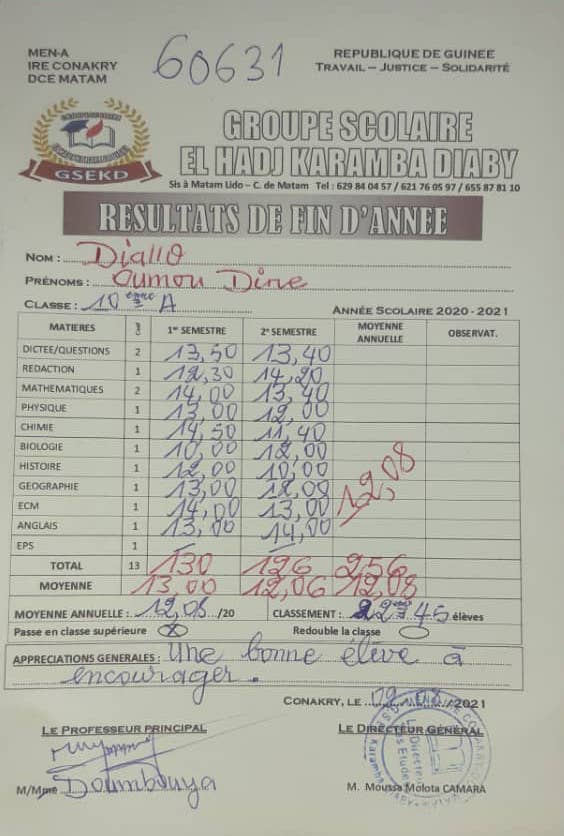 MEN-A
IRE CONAKRY
DCE MATAM
60631
REPUBLIQUE DE GUINEE
TRAVAIL – JUSTICE – SOLIDARITÉ
GSEKD
GROUPE SCOLAIRE
EL HADJ KARAMBA DIABY
Sis à Matam Lido – C. de Matam Tel : 629 84 04 57 / 621 76 05 97 / 655 87 81 10
RESULTATS DE FIN D'ANNEE
NOM : Diallo
PRÉNOMS : Oumou Dine
CLASSE : 10 ème A ANNÉE SCOLAIRE 2020 - 2021
MATIERES 1er SEMESTRE 2e SEMESTRE MOYENNE ANNUELLE OBSERVAT.
DICTEE/QUESTIONS 2 13,50 13,40
REDACTION 1 12,30 14,20
MATHEMATIQUES 2 14,00 13,40
PHYSIQUE 1 13,00 12,00
CHIMIE 1 14,50 11,40
BIOLOGIE 1 10,00 12,00
HISTOIRE 1 12,00 10,00
GEOGRAPHIE 1 13,00 12,00
ECM 1 14,00 13,00
ANGLAIS 1 13,00 14,00
EPS 1
12,08
TOTAL 13 130 126 256
MOYENNE 13.00 12,06 12,08
MOYENNE ANNUELLE : 12,08 /20 CLASSEMENT : 22ème 45 élèves
Passe en classe supérieure X Redouble la classe
APPRECIATIONS GENERALES : Une bonne élève à
encourager.
CONAKRY, LE /2021
LE PROFESSEUR PRINCIPAL LE DIRECTEUR GÉNÉRAL
M/Mme Doumbouya M. Moussa Molota CAMARA